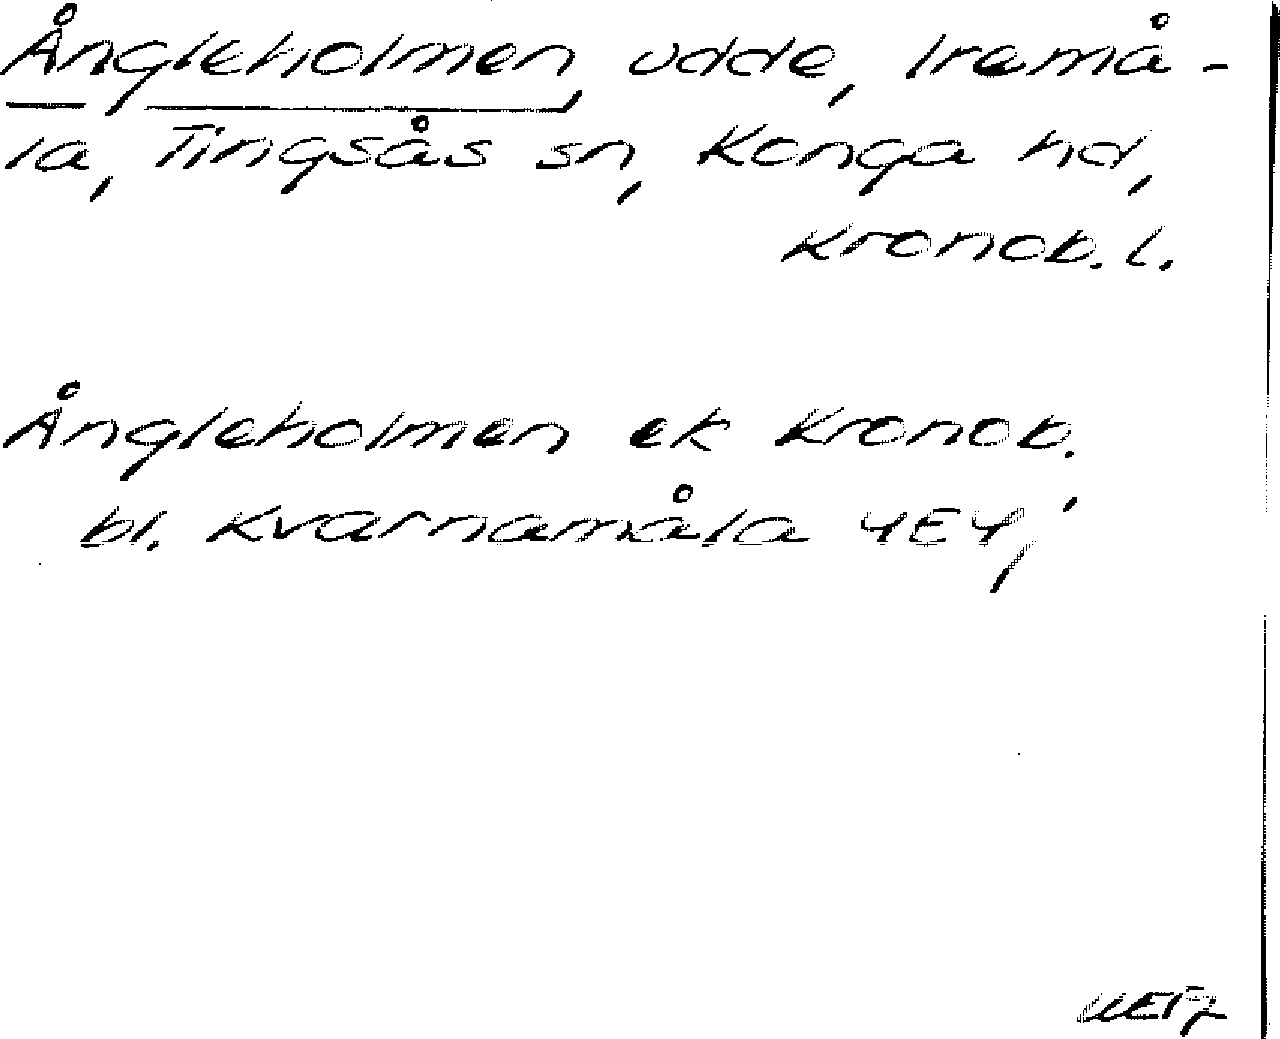 Ångleholmen, udde, Iremå-
la, Tingsås sn, Konga hd,
Kronob. l.
Ångleholmen ek Kronob.
bl. Kvarnamåla 4E4,